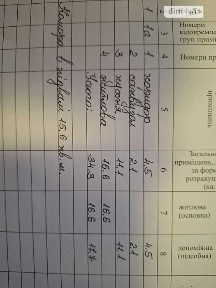 dim.ria
Номери
відокремле
груп примі
Номери пр
Загальн
приміщень,
за форм
розрахун
(кв.
житлова
(основна)
допоміжна
(підсобна)
1 2 3 4 5 6 7 8
1 1а 1 коридор 4.5 4.5
2 санвузол 2.1 2.1
3 кухня 11.1 11.1
4 житлова 16.6 16.6
Усього: 34.3 16.6 17.7
Комора в підвалі 15.6 кв.м.